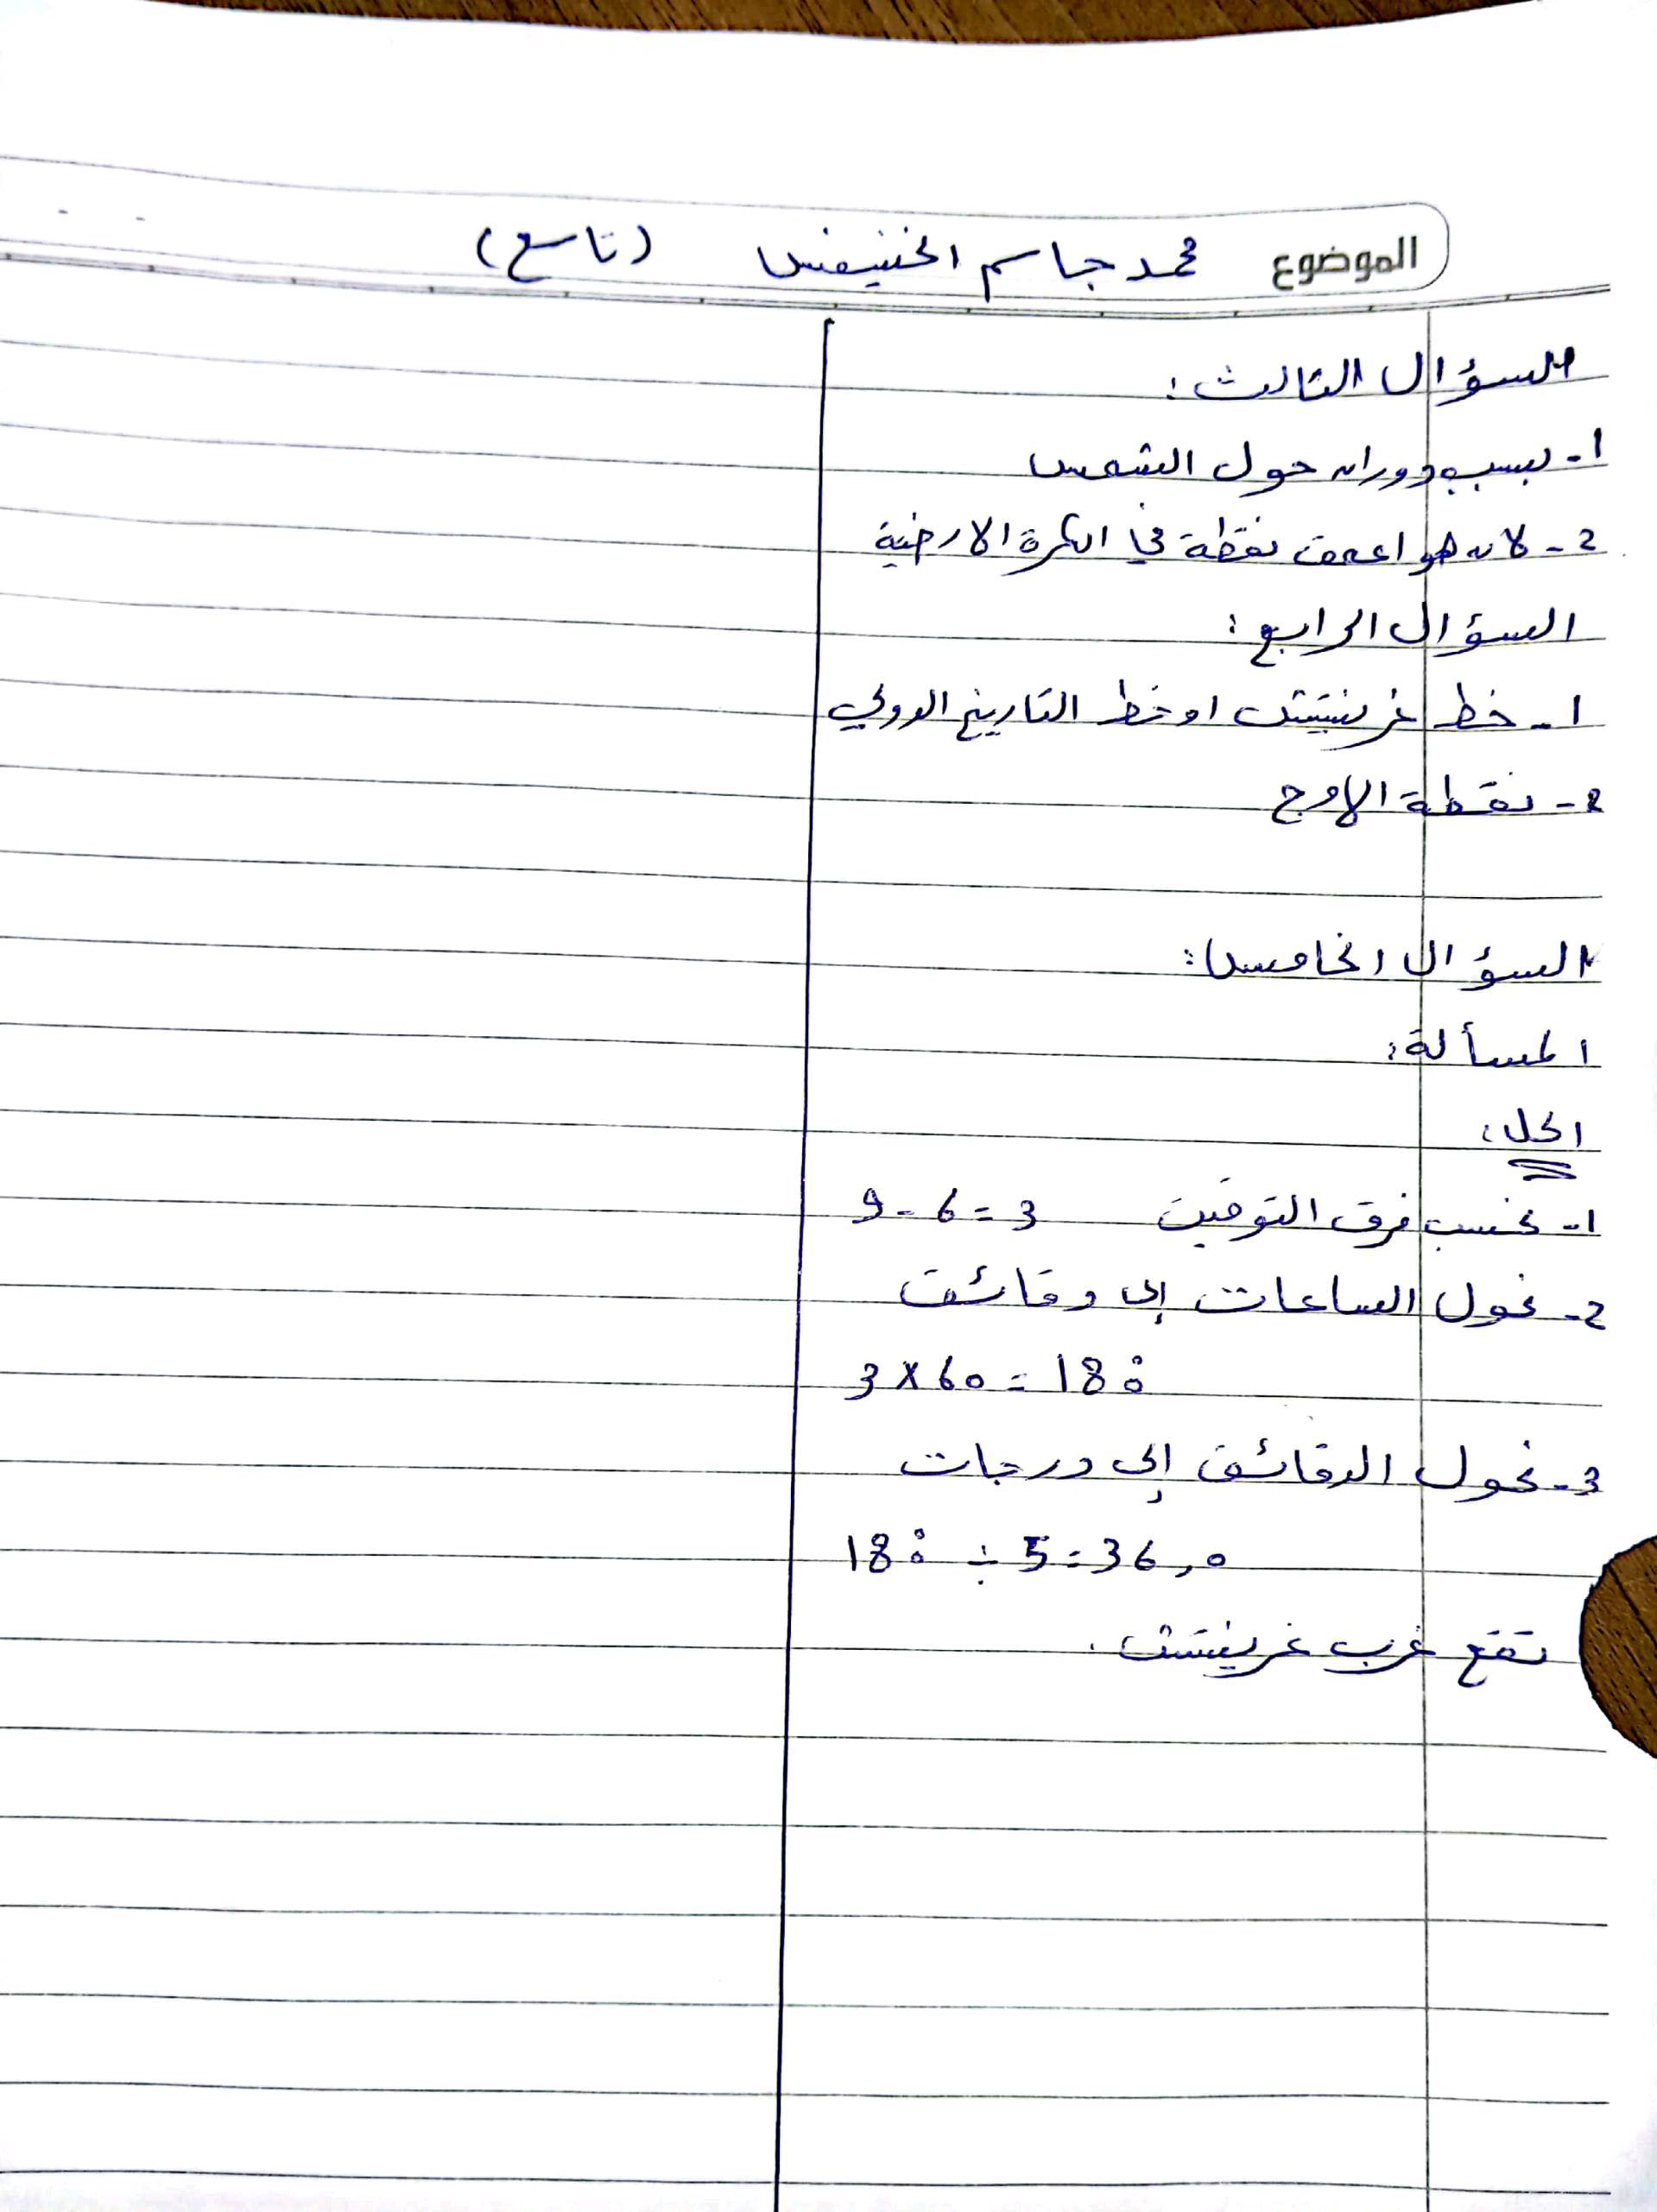 الموضوع محمد جاسم الخنيفس (تاسع)
السؤال الثالث:
1- بسبب دورانه حول الشمس
2- لانه هو اعمق نقطة في الكرة الارضية
السؤال الرابع:
1- خط غرينيتش او خط التاريخ الدولي
2- نقطة الاوج
السؤال الخامس:
المسألة:
الحل:
1- نحسب فرق التوقيت 9-6=3
2- نحول الساعات إلى دقائق
3×60=180
3- نحول الدقائق إلى درجات
180 ÷ 5=36,0
تقع غرب غرينتش.